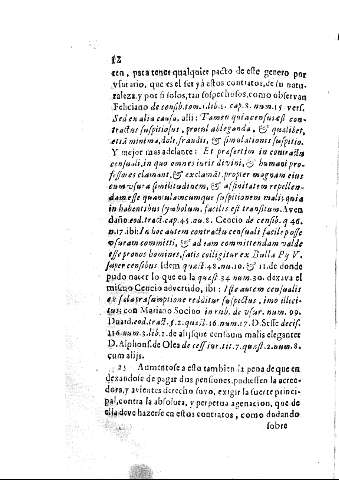 12
cen, para tener qualquier pacto de este genero por
vsurario, que es el ser yà estos contratos, de su natu-
raleza, y por si solos, tan sospechosos, como observan
Feliciano de censib. tom. 1. lib. 2. cap. 8. num. 15 vers.
Sed en alia causa. alli: Tamen quia census est con-
tractus suspitiosus, procul ableganda, & qualibet,
etiã minima, doli, fraudis, & simulationes suspitio.
Y mejor mas adelante: Et præsertim in contractu
censuali, in quo omnes iuris divini, & humani pro-
fessores clamant, & exclamãt, propter magnam eius
cum vsura similitudinem, & ad pietatem repellen-
dam esse quamvlamcumque suspitionem mali; quia
in habentibus symbolum, facilis est transitum. Aven
daño. eod. tract. cap. 45. nu. 8. Cencio de censib. q 46.
n. 17. ibi: In hoc autem contractu censuali facile posse
vsuram committi, & ad eam committendam valde
esse pronos homines, satis colligitur ex Bulla Pij V.
super censibus. Idem quæst. 48. nu. 10. & 11. de donde
pudo nacer lo que en la quæst 34 num. 30. dexava el
mismo Cencio advertido, ibi: Iste autem censualis
ex sola præsumptione redditur suspectus, imo illici-
tus; con Mariano Socino in rub. de vsur. num. 99.
Duard. eod. tract. §. 2. quæst. 16. num. 17. D. Sesse decis.
216. num. 3. lib. 2. de alijsque censuum malis eleganter
D. Alphons. de Olea de cess. iur. tit. 7. quæst. 2. num. 8.
cum alijs.
23 Aumentose à esto tambien la pena de que en
dexandose de pagar dos pensiones, pudiessen la acree-
dora, y avientes derecho suyo, exigir la suerte princi-
pal, contra la absoluta, y perpetua agenacion, que de
ella deve hazerse en estos contratos; como dudando
sobre